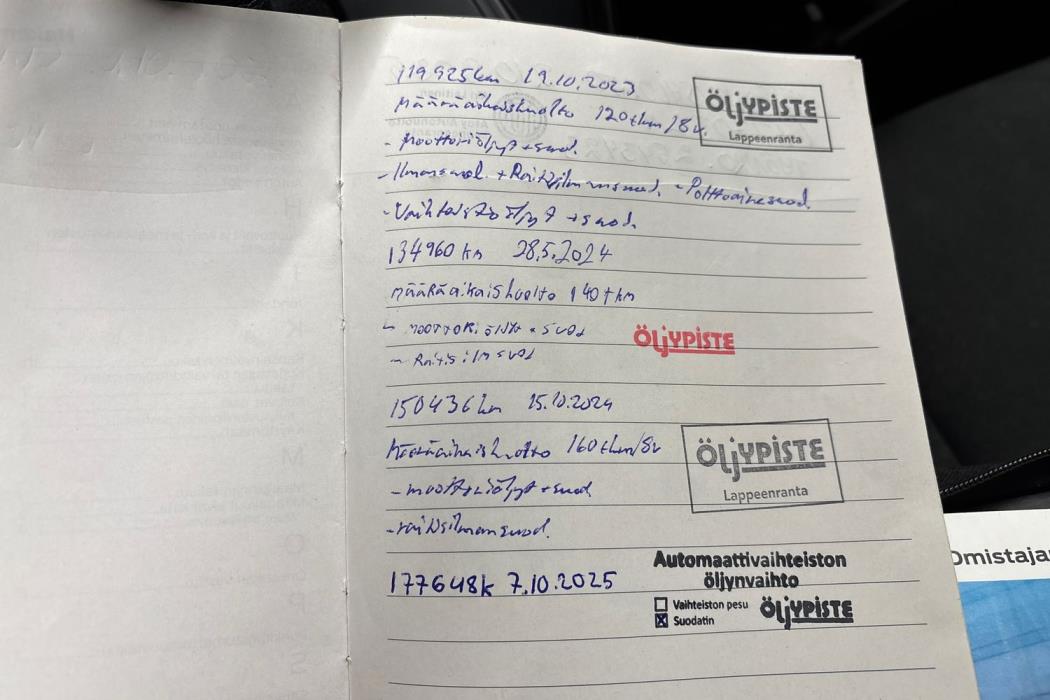 119925km 19.10.2023
Määräaikaishuolto 120tkm/8v.
ÖljYPISTE
Lappeenranta
- Moottoriöljyt + suod.
- Ilmansuod. + Raitisilmansuod. - Polttoainesuod.
- Vaihteistoöljyt + suod.
134960 km 28.5.2024
määräaikaishuolto 140tkm
- moottoriöljyt + suod
ÖljYPISTE
- Raitis ilm suod
150436km 15.10.2024
Määräaikaishuolto 160tkm/8v
ÖljYPISTE
Lappeenranta
- moottoriöljyt + suod
- raitisilmansuod.
177648k 7.10.2025
Automaattivaihteiston
öljynvaihto
Vaihteiston pesu
Suodatin
ÖljYPISTE
Omistaja